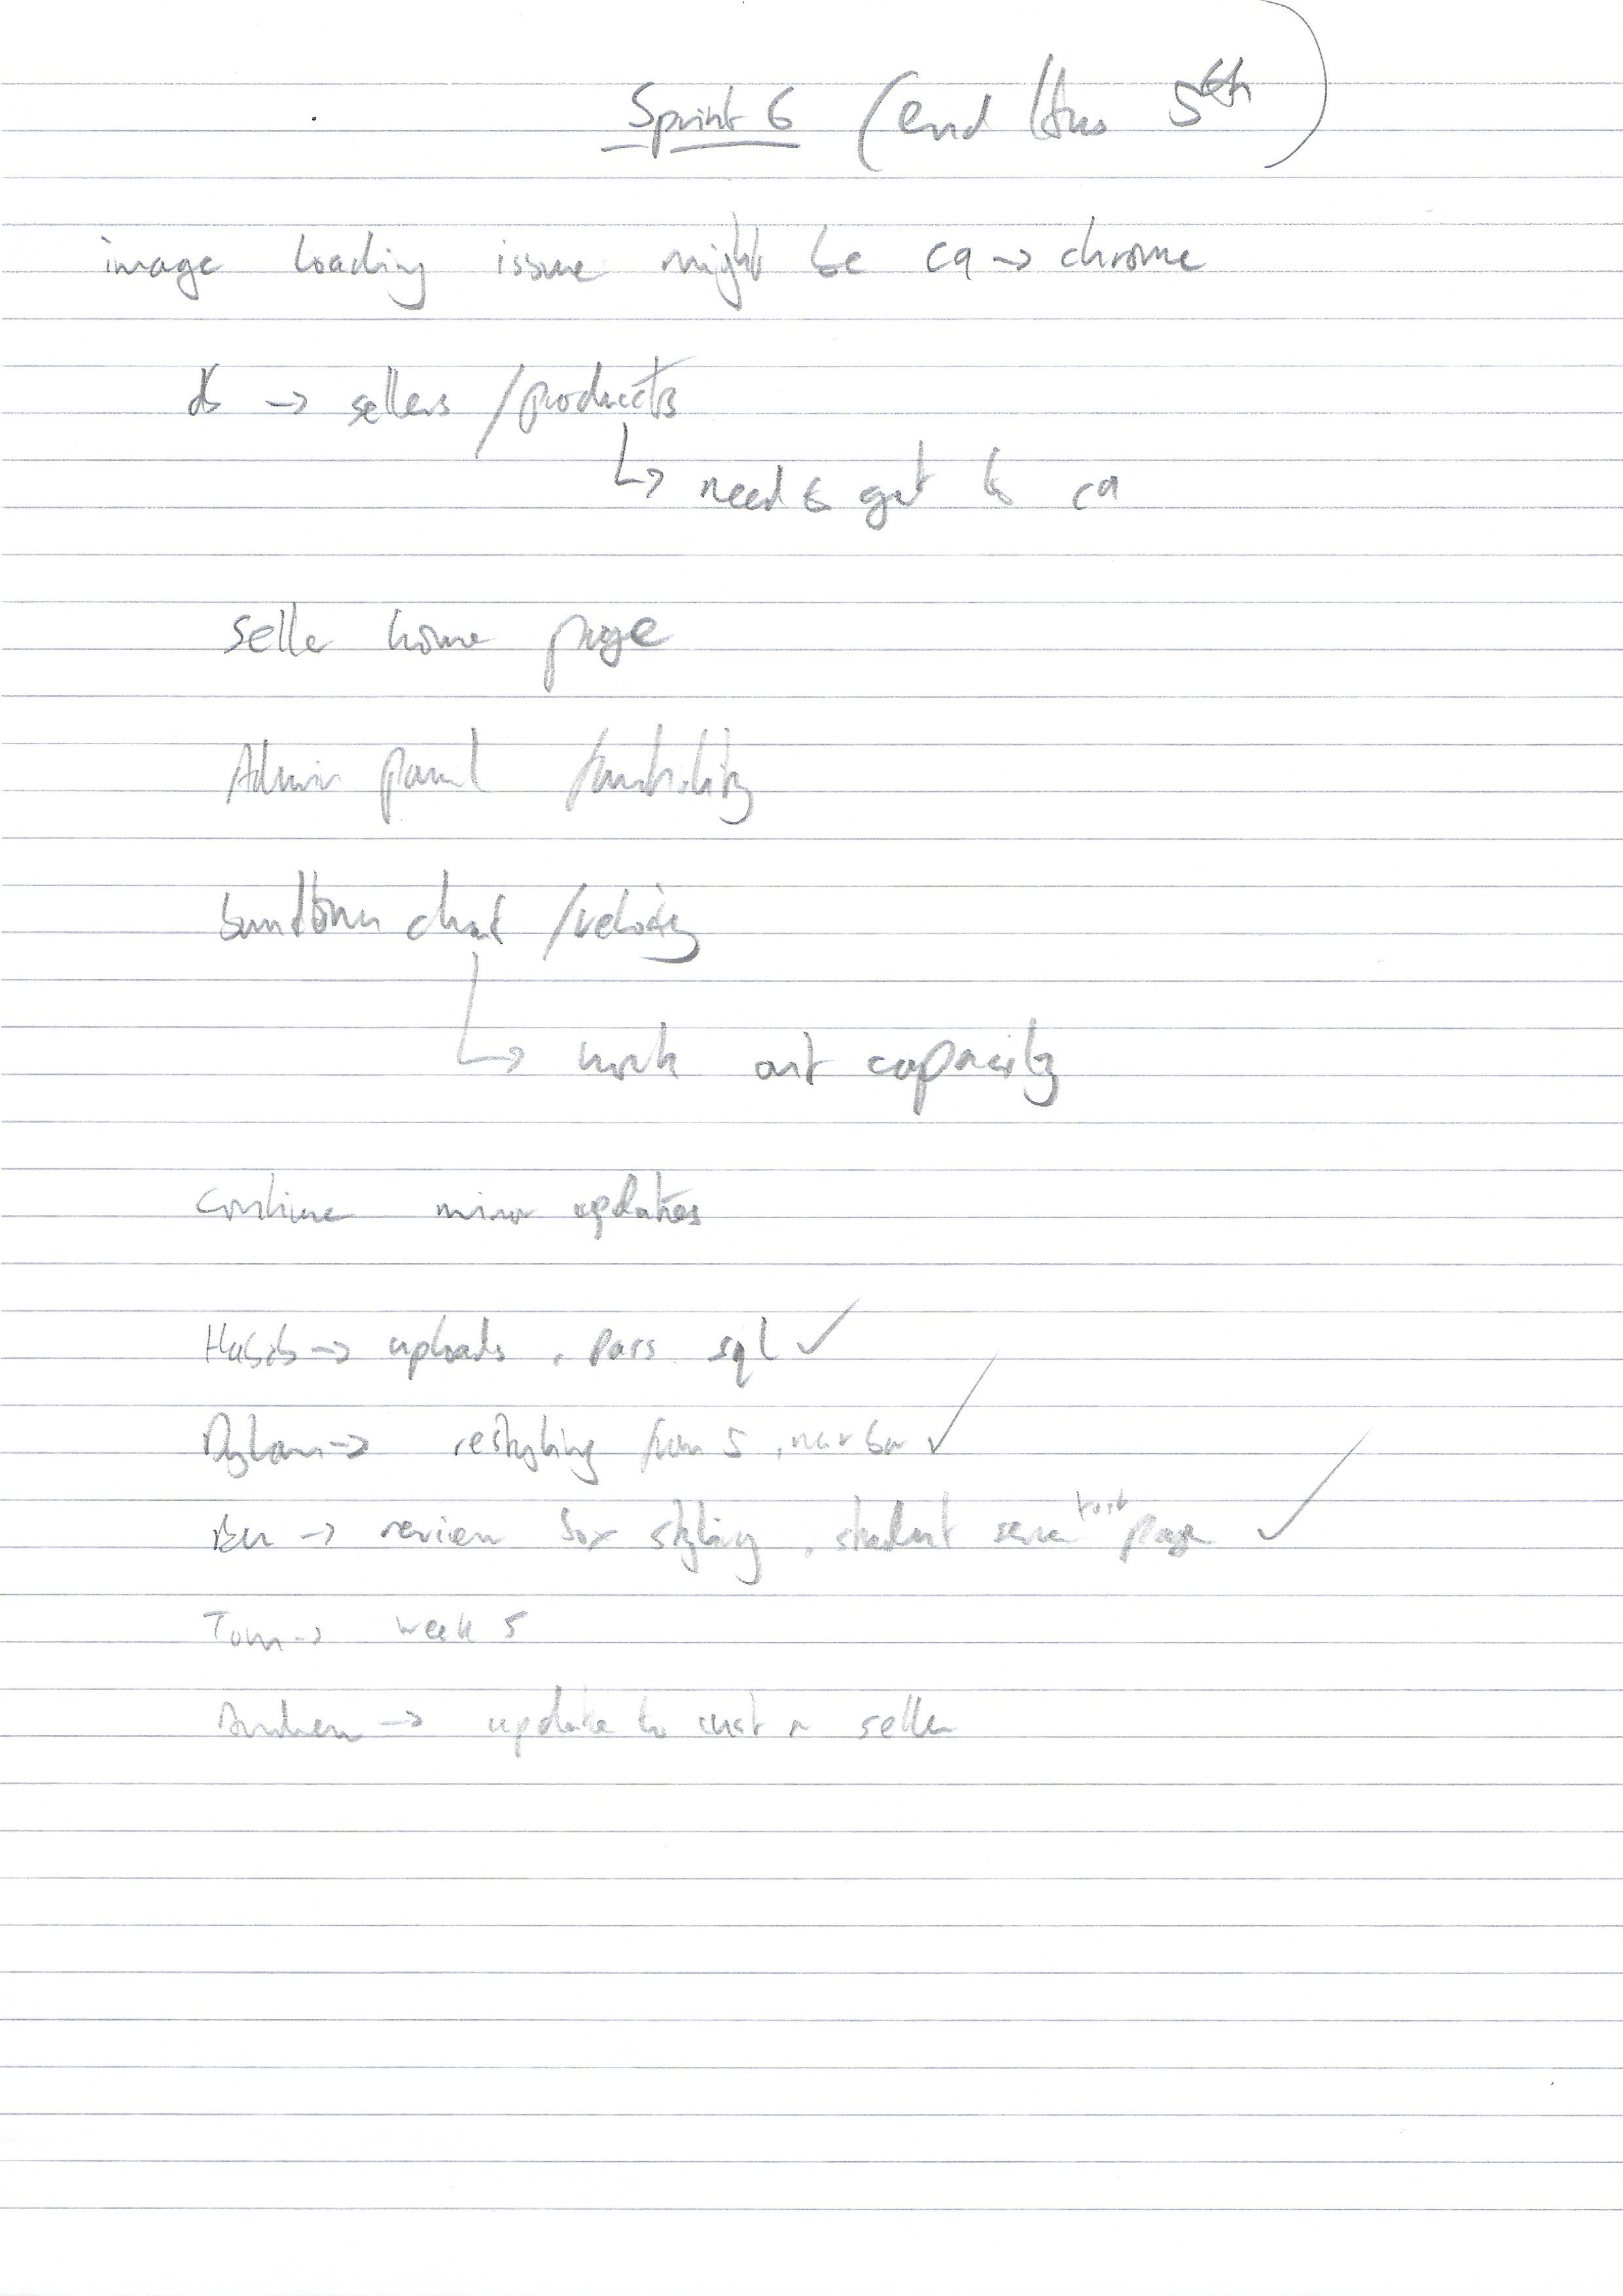 Sprint 6 (end thus 5th)
image loading issue might be ca → chrome
db → sellers / products
↳ need to get to ca
Seller home page
Admin panel functionality
burndown chart / velocity
↳ work out capacity
Continue minor updates
Habib → uploads, pars sql ✓
Dylan → restyling from 5, navbar ✓
Ben → review box styling, student page ✓
Tom → week 5
Andrew → update to seller